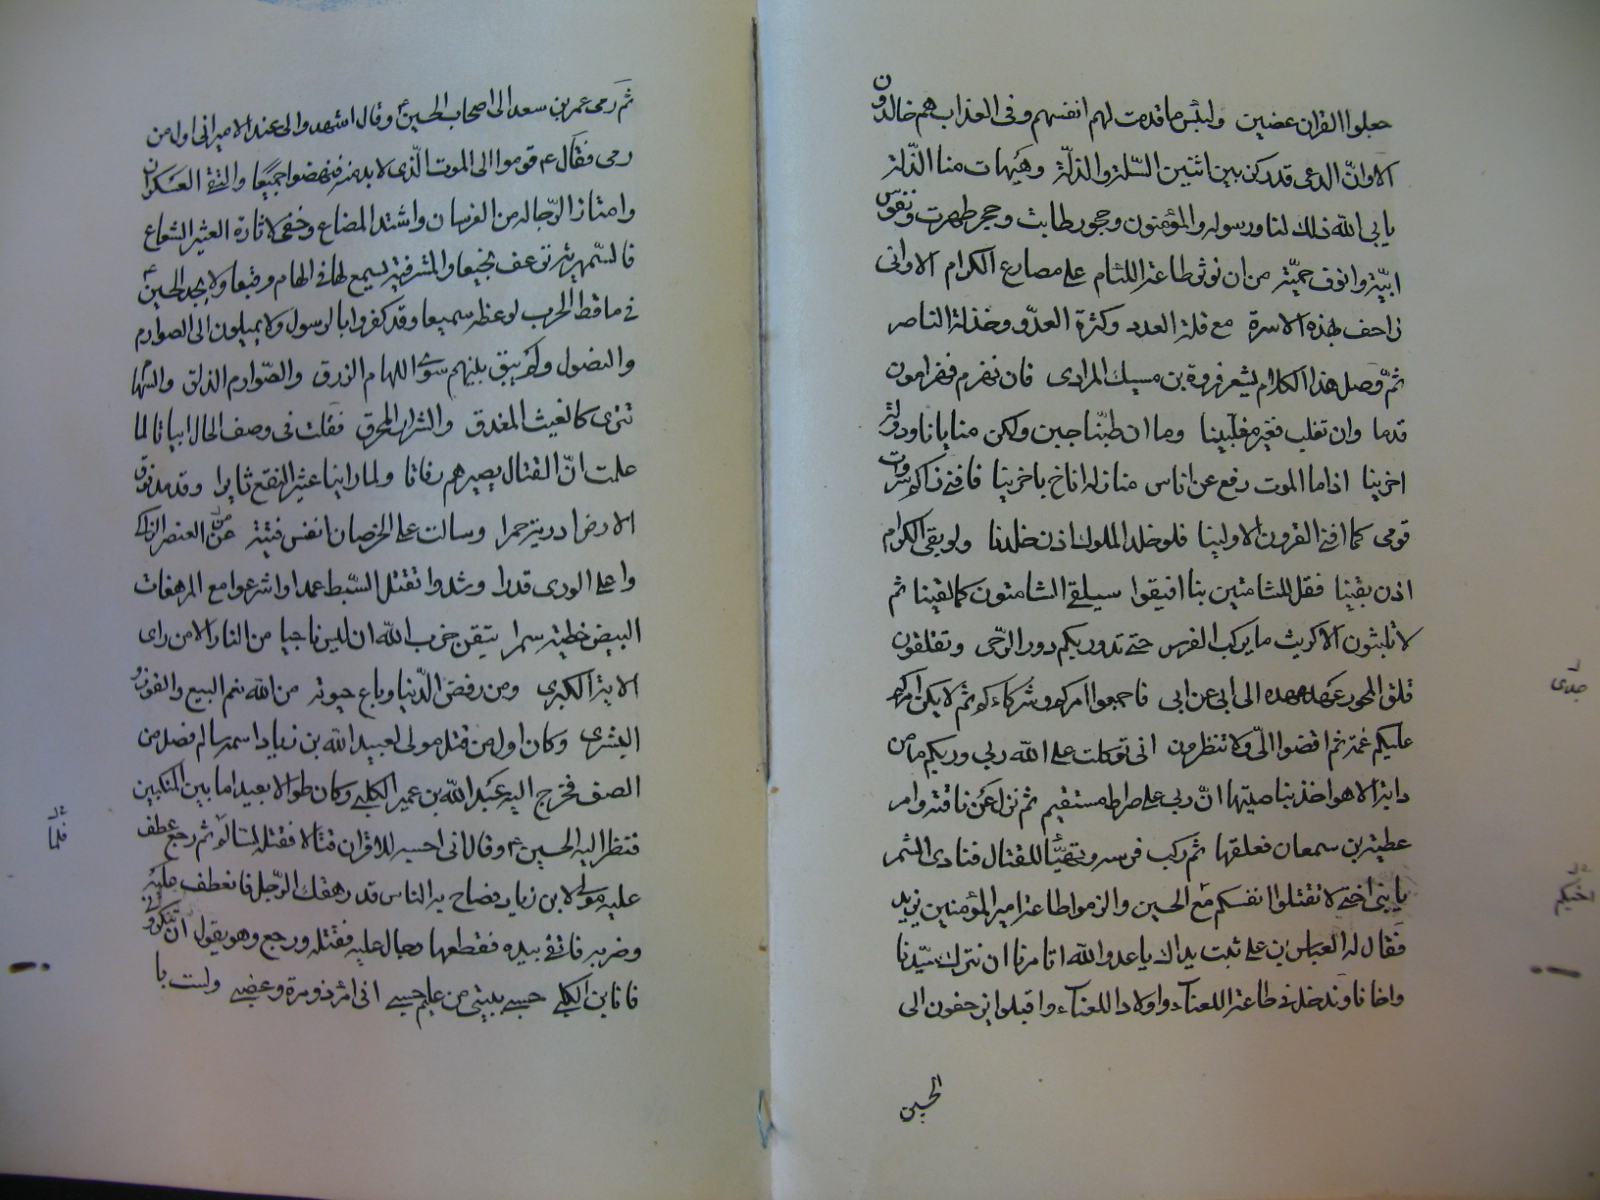 جعلوا القران عضين ولبئس ما قدمت لهم انفسهم وفى العذاب هم خالدون
الا وانّ الدعى قد ركن بين اثنتين السّلة والذلّة وهيهات منا الذّلة
يابى الله ذلك لنا ورسوله والمؤمنون وحجور طابت وحجز طهرت ونفوس
ابيّة وانوف حميّة من ان نوثر طاعة اللئام على مصارع الكرام الا وانى
زاحف بهذه الاسرة مع قلة العدد وكثرة العدّو وخذلة الناصر
ثمّ وصل هذا الكلام بشعر فروة بن مسيك المرادى فان نهزم فهزامون
قدما وان نغلب فغير مغلّبينا وما ان طبّنا جبن ولكن منايانا ودولة
اخرينا اذا ما الموت رفع عن اناس مناز له اناخ باخرينا فافنى ذاكم سروات
قومى كما افنى القرون الاولينا فلو خلد الملوك اذن خلدنا ولو بقى الكرام
اذن بقينا فقل للشامتين بنا افيقوا سيلقى الشامتون كما لقينا ثم
لا تلبثون الا كريث ما يركب الفرس حتى تدور بكم دور الرّحى وتقلقون
قلق المحور عهد عهده الى ابى عن ابى فاجمعوا امركم وشركاءكم ثم لا يكن امركم
جدى
عليكم غمة ثم اقضوا الىّ ولا تنظرون انى توكلت على الله ربى وربكم ما من
دابة الا هو اخذ بناصيتها انّ ربى على صراط مستقيم ثم نزل عن ناقته وامر
عطية بن سمعان فعلقها ثم ركب فرسه وتهيّأ للقتال فنادى الشمر
يا بنى اختى لا تقتلوا انفسكم مع الحسين والزموا طاعة امير المؤمنين يزيد
اخيكم
فقال له العباس بن على تبت يداك يا عدو الله اتامرنا ان نترك سيّدنا
واخانا وندخل فى طاعة اللعناء واولاد اللعناء واقبلوا يزحفون الى
الحسين
ثم رمى عمر بن سعد الى اصحاب الحسين ع وقال اشهدوا لى عند الامير انى اول من
رمى فقال ع قوموا الى الموت الّذى لا بد منه فنهضوا جميعًا والتقى العسكران
وامتاز الرّجاله من الفرسان واشتد المصاع وخفى لاثارة العثير الشعاع
فالسّمهرية ترعف نجيعا والمشرفية يسمع لها فى الهام وقيعا ولا يجد الحسين ع
فى ماقط الحرب لوعظه سميعا وقد كفروا بالرسول ولا يميلون الى الصوارم
والنصول ولم يبق بينهم سوى اللهام الزرق والصّوارم الذلق والسّهام
تترى كالغيث المغدق والشرار المحرق فقلت فى وصف الحال ابياتا لما
علمت انّ القتال يصيرهم رفاتا ولما راينا عثير النقع ثايرا وقد مد فوق
الارض اردية حمرا وسالت على الخرصان انفس فتية من العنصر الزاكى
واعلى الورى قدرا وشدوا تقتل السّبط عمدا واشرعوا مع المرهفات
البيض خطية سمرا تيقن حزب الله ان ليس ناجيا من النار الا من راى
الاية الكبرى ومن رفض الدّنيا وباع حيوته من الله نعم البيع والفوز و
البشرى وكان اول من قتل مولى لعبيد الله بن زياد اسمه سالم فصل من
الصف فخرج اليه عبد الله بن عمير الكلبى وكان طوالا بعيد ما بين المنكبين
فنظر اليه الحسين ع وقال انى احسبه للاقران قتّالا فقتله سالم ثم رجع عطف
فلما
عليه مولى لابن زياد فصاح به الناس قد رهقك الرّجل فانعطف عليه
وضربه فاتقى بيده فقطعها وجال عليه فقتله ورجع وهو يقول ان تنكرونى
فانا ابن الكلبى حسبى ببيتى من عليم حسبى انى امرؤ ذو مرة وعضب ولست با